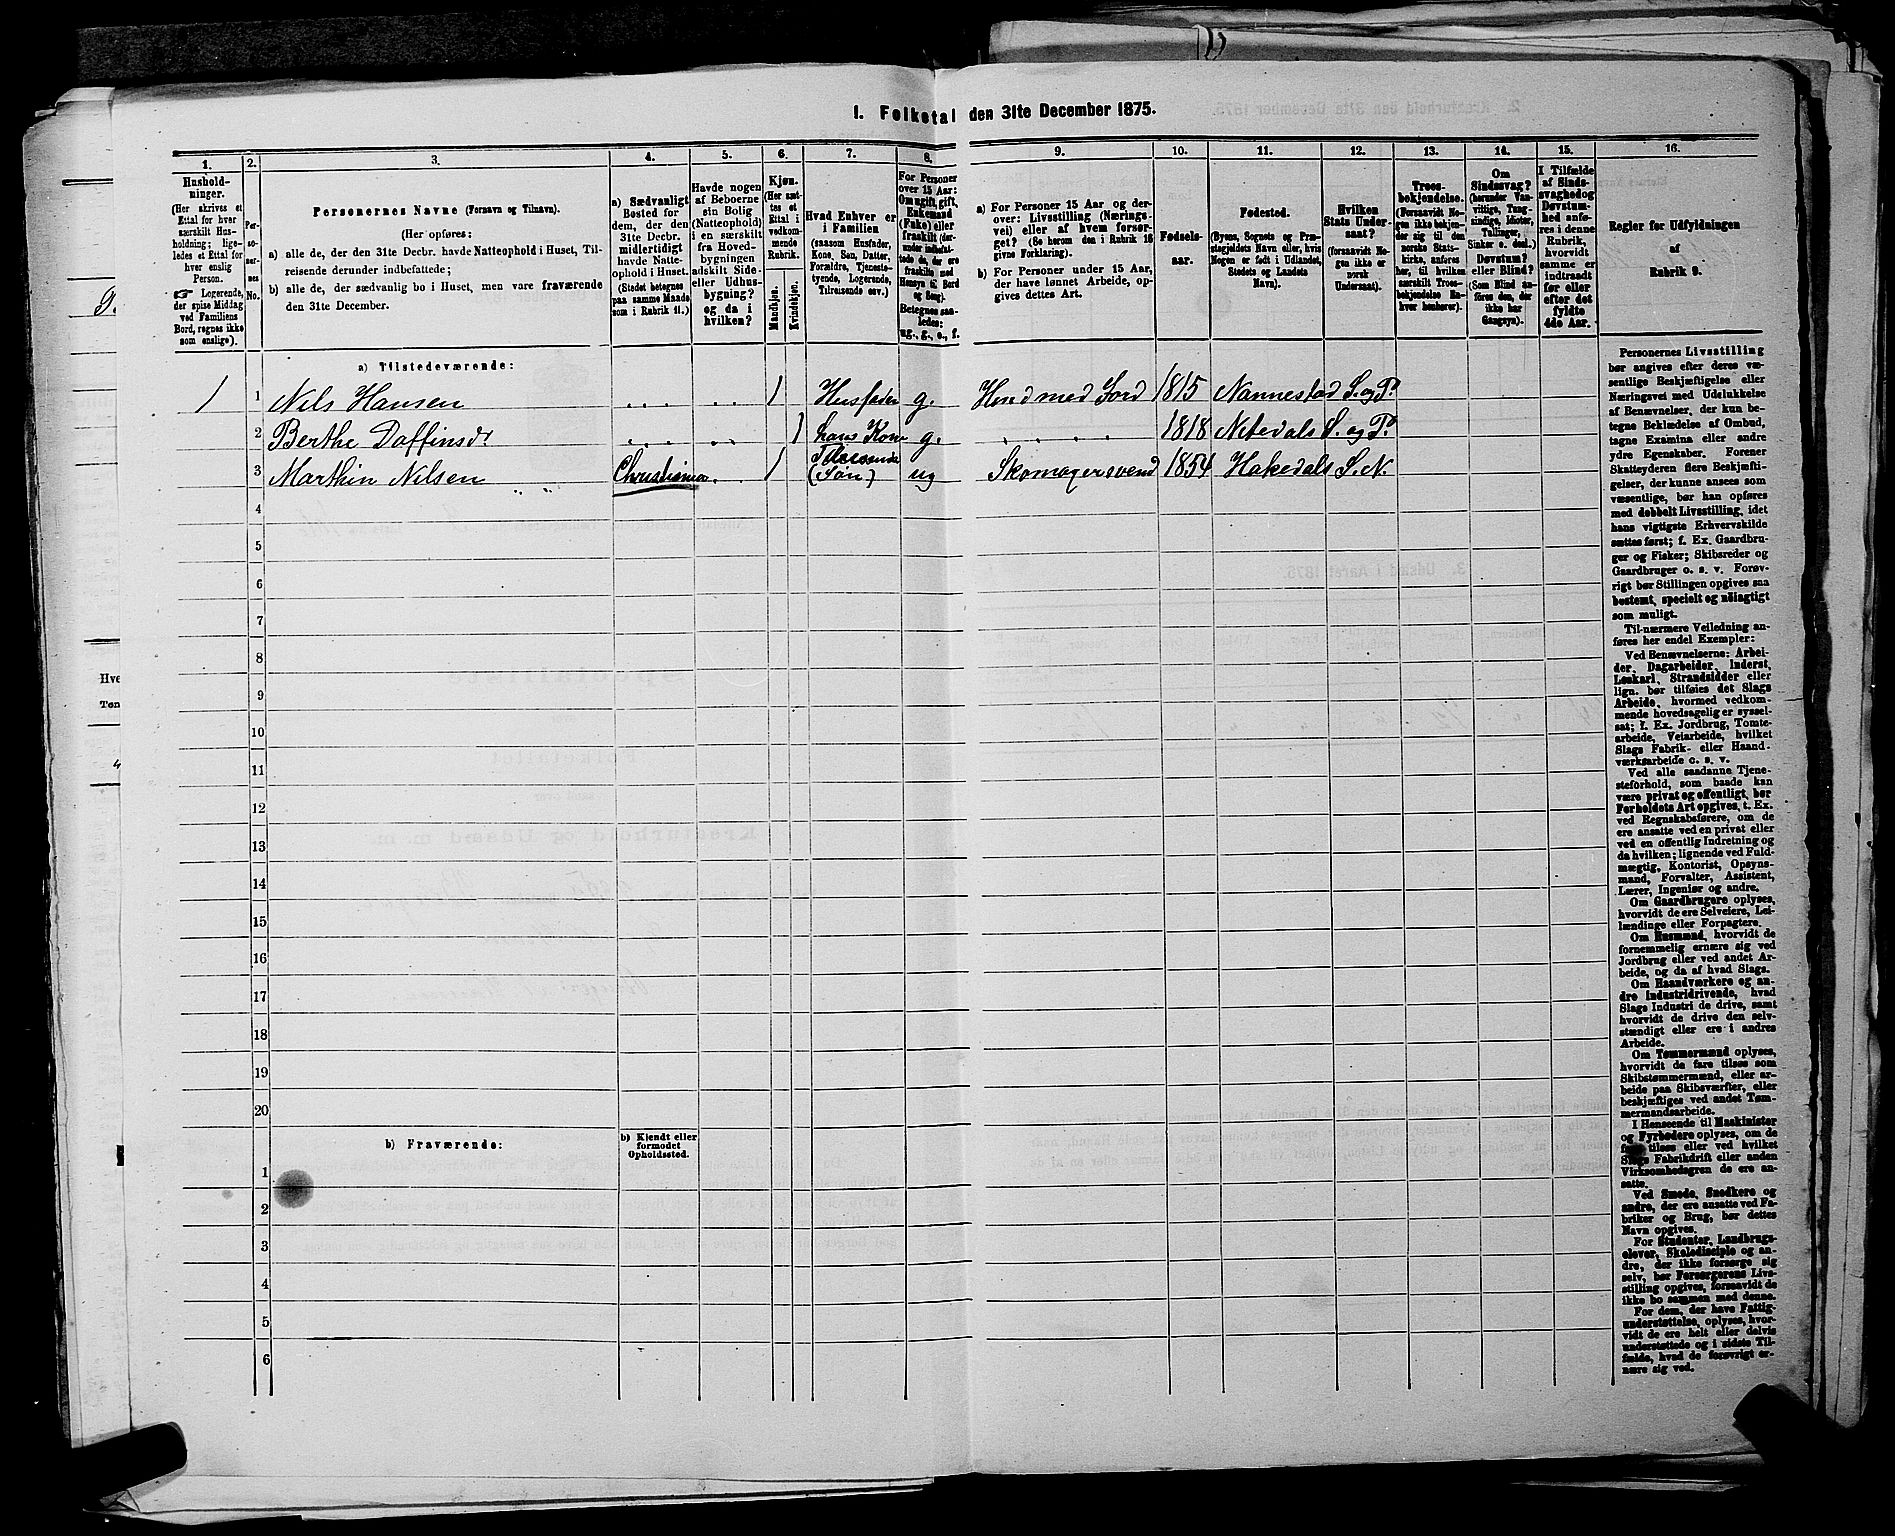 1. Folketal den 31te December 1875.
1.
2.
3.
4.
5.
6.
7.
8.
9.
10.
11.
12.
13.
14.
15.
16.
Hushold-
ninger.
(Her skrives et
Ettal for hver
særskilt Hus-
holdning; lige-
ledes et Ettal for
hver enslig
Person.
☛ Logerende,
der spise Middag
ved Familiens
Bord, regnes ikke
som enslige).
Per-
so-
ner-
nes
No.
Personernes Navne (Fornavn og Tilnavn).
(Her opføres:
a) alle de, der den 31te Decbr. havde Natteophold i Huset, Til-
reisende derunder indbefattede;
b) alle de, der sædvanlig bo i Huset, men vare fraværende
den 31te December.
a) Sædvanligt
Bosted for
dem, der den
31te Decbr.
midlertidigt
havde Natte-
ophold i Huset.
(Stedet betegnes
paa samme Maade
som i Rubrik 11.)
Havde nogen
af Beboerne
sin Bolig
(Natteophold)
i en særskilt
fra Hoved-
bygningen
adskilt Side-
eller Udhus-
bygning?
og da i
hvilken?
Kjøn.
(Her sæt-
tes et
Ettal i
vedkom-
mende
Rubrik.
Mandkjøn.
Kvindekjøn.
Hvad Enhver er
i Familien
(saasom Husfader,
Kone, Søn, Datter,
Forældre, Tjeneste-
tyende, Logerende,
Tilreisende osv.)
For Personer
over 15 Aar:
Om ugift, gift,
Enkemand
(Enke) eller
fraskilt (der-
under indbefat-
tede de, der ere
fraskilte med
Hensyn til Bord
og Seng).
Betegnes saa-
ledes:
ug., g., e., f.
a) For Personer 15 Aar og der-
over: Livsstilling (Nærings-
vei) eller af hvem forsør-
get? (Se herom den i Rubrik 16
givne Forklaring).
b) For Personer under 15 Aar,
der have lønnet Arbeide, op-
gives dettes Art.
Fødsels-
aar.
Fødested.
(Byens, Sognets og Præ-
stegjeldets Navn eller, hvis
Nogen er født i Udlandet,
Stedets og Landets
Navn).
Hvilken
Stats Under-
saat?
(forsaavidt No-
gen ikke er
norsk
Undersaat).
Troes-
bekjendelse.
(Forsaavidt No-
gen ikke bekjen-
der sig til den
norske Stats-
kirke, anføres
her, til hvilken
særskilt Troes-
bekjendelse En-
hver henhører).
Om
Sindssvag?
(herunder Van-
vittige, Tung-
sindige, Idioter,
Tullinger,
Sinker o. desl.)
Døvstum?
eller Blind?
(Som Blind an-
føres den, der
ikke har
Gangsyn).
I Tilfælde
af Sinds-
svaghed og
Døvstum-
hed anfø-
res i denne
Rubrik,
hvorvidt
samme er
indtraadt
før eller
efter det
fyldte
4de Aar.
Regler for Udfyldningen
af
Rubrik 9.
a) Tilstedeværende:
1 1 Nils Hansen .. . .. 1 Husfader g. Husmd med Jord 1815 Nannestad S. og P.
2 Berthe Daffinsdr .. .. .. 1 hans Kone g. . . . . 1818 Nitedals S. og P.
3 Marthin Nilsen " " Christiania . 1 Tilreisende (Søn) ug Skomagersvend 1854 Hakedals S. N.
4
5
6
7
8
9
10
11
12
13
14
15
16
17
18
19
20
b) Fraværende:
b) Kjendt eller
formodet
Opholdssted.
1
2
3
4
5
6
Personernes Livsstilling
bør angives efter deres væ-
sentlige Beskjæftigelse eller
Næringsvei med Udelukkelse
af Benævnelser, der kun be-
tegne Beklædelse af Ombud,
tagne Examina eller andre
ydre Egenskaber. Forener
Skatteyderen flere Beskjæfti-
gelser, der kunne ansees som
væsentlige, bør han opføres
med dobbelt Livsstilling, idet
hans vigtigste Erhvervskilde
sættes først; f. Ex. Gaardbru-
ger og Fisker; Skibsreder og
Gaardbruger o. s. v. Forøv-
rigt bør Stillingen opgives saa
bestemt, specielt og nøiagtigt
som muligt.
Til nærmere Veiledning an-
føres her endel Exempler:
Ved Benævnelserne: Arbei-
der, Dagarbeider, Inderst,
Løskarl, Strandsidder eller
lign. bør tilføies det Slags
Arbeide, hvormed vedkom-
mende hovedsagelig er syssel-
sat; f. Ex. Jordbrug, Tomte-
arbeide, Veiarbeide, hvilket
Slags Fabrik- eller Haand-
værksarbeide o. s. v.
Ved alle saadanne Tjene-
steforhold, som baade kan
være privat og offentligt, bør
Forholdets Art opgives, t. Ex.
ved Regnskabsførere, om de
ere ansatte ved en privat eller
ved en offentlig Indretning og
da hvilken; lignende ved Fuld-
mægtig, Kontorist, Opsyns-
mand, Forvalter, Assistent,
Lærer, Ingeniør og andre.
Om Gaardbrugere oplyses,
hvorvidt de ere Selveiere, Lei-
lændinge eller Forpagtere.
Om Husmænd, hvorvidt de
fornemmelig ernære sig ved
Jordbrug eller ved andet Ar-
beide, og da af hvad Slags.
Om Haandværkere og an-
dre Industridrivende, hvad
Slags Industri de drive, samt
hvorvidt de drive den selv-
stændigt eller ere i andres
Arbeide.
Om Tømmermænd oplyses,
hvorvidt de fare tilsøs som
Skibstømmermænd, eller ar-
beide paa Skibsværfter, eller
beskjæftiges ved andet Tøm-
mermandsarbeide.
I Henseende til Maskinister
og Fyrbødere oplyses, om de
fare tilsøs eller ved hvilket
Slags Fabrikdrift eller anden
Virksomhedsgren de ere an-
satte.
Ved Smede, Snedkere og
andre, der ere ansatte ved Fa-
briker og Brug, bør dettes
Navn opgives.
For Studenter, Landbrugs-
elever, Skoledisciple og an-
dre, der ikke forsørge sig
selv, bør Forsørgerens Livs-
stilling opgives, forsaavidt de
ikke bo sammen med denne.
For dem, der have Fattig-
understøttelse, oplyses, hvor-
vidt de ere helt eller delvis
understøttede og i sidste Til-
fælde, hvad de forøvrigt er-
nære sig ved.